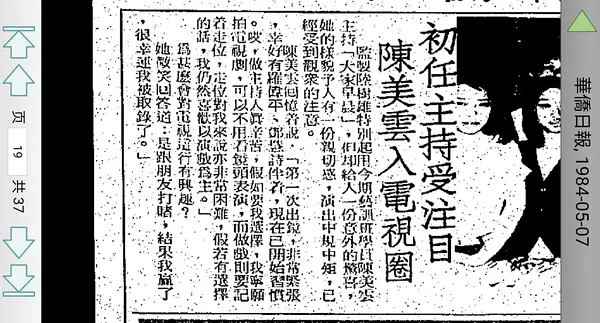 初任主持受注目
陳美雲入電視圈
監製陸樹雄特別起用今期藝訓班學員陳美雲
主持「大家早晨」，但却給人一份意外的驚喜，
她的樣貌予人有一份親切感，演出中規中矩，已
經受到觀衆的注意。
陳美雲回憶着說，「第一次出鏡，非常緊張
，幸好有羅偉平、鄭恩詩伴着，現在已開始習慣
。哎，做主持人眞辛苦，假如要我選擇，我寧願
拍電視劇，可以不用看鏡頭表演，而做戲則要記
着走位，走位對我來說亦非常困難，假若有選擇
的話，我仍然喜歡以演戲爲主。」
爲甚麼會對電視這行有興趣？
她微笑回答道：是跟朋友打賭，結果我贏了
，很幸運我被取錄了。」
华侨日報, 1984-05-07
页
19
共 37